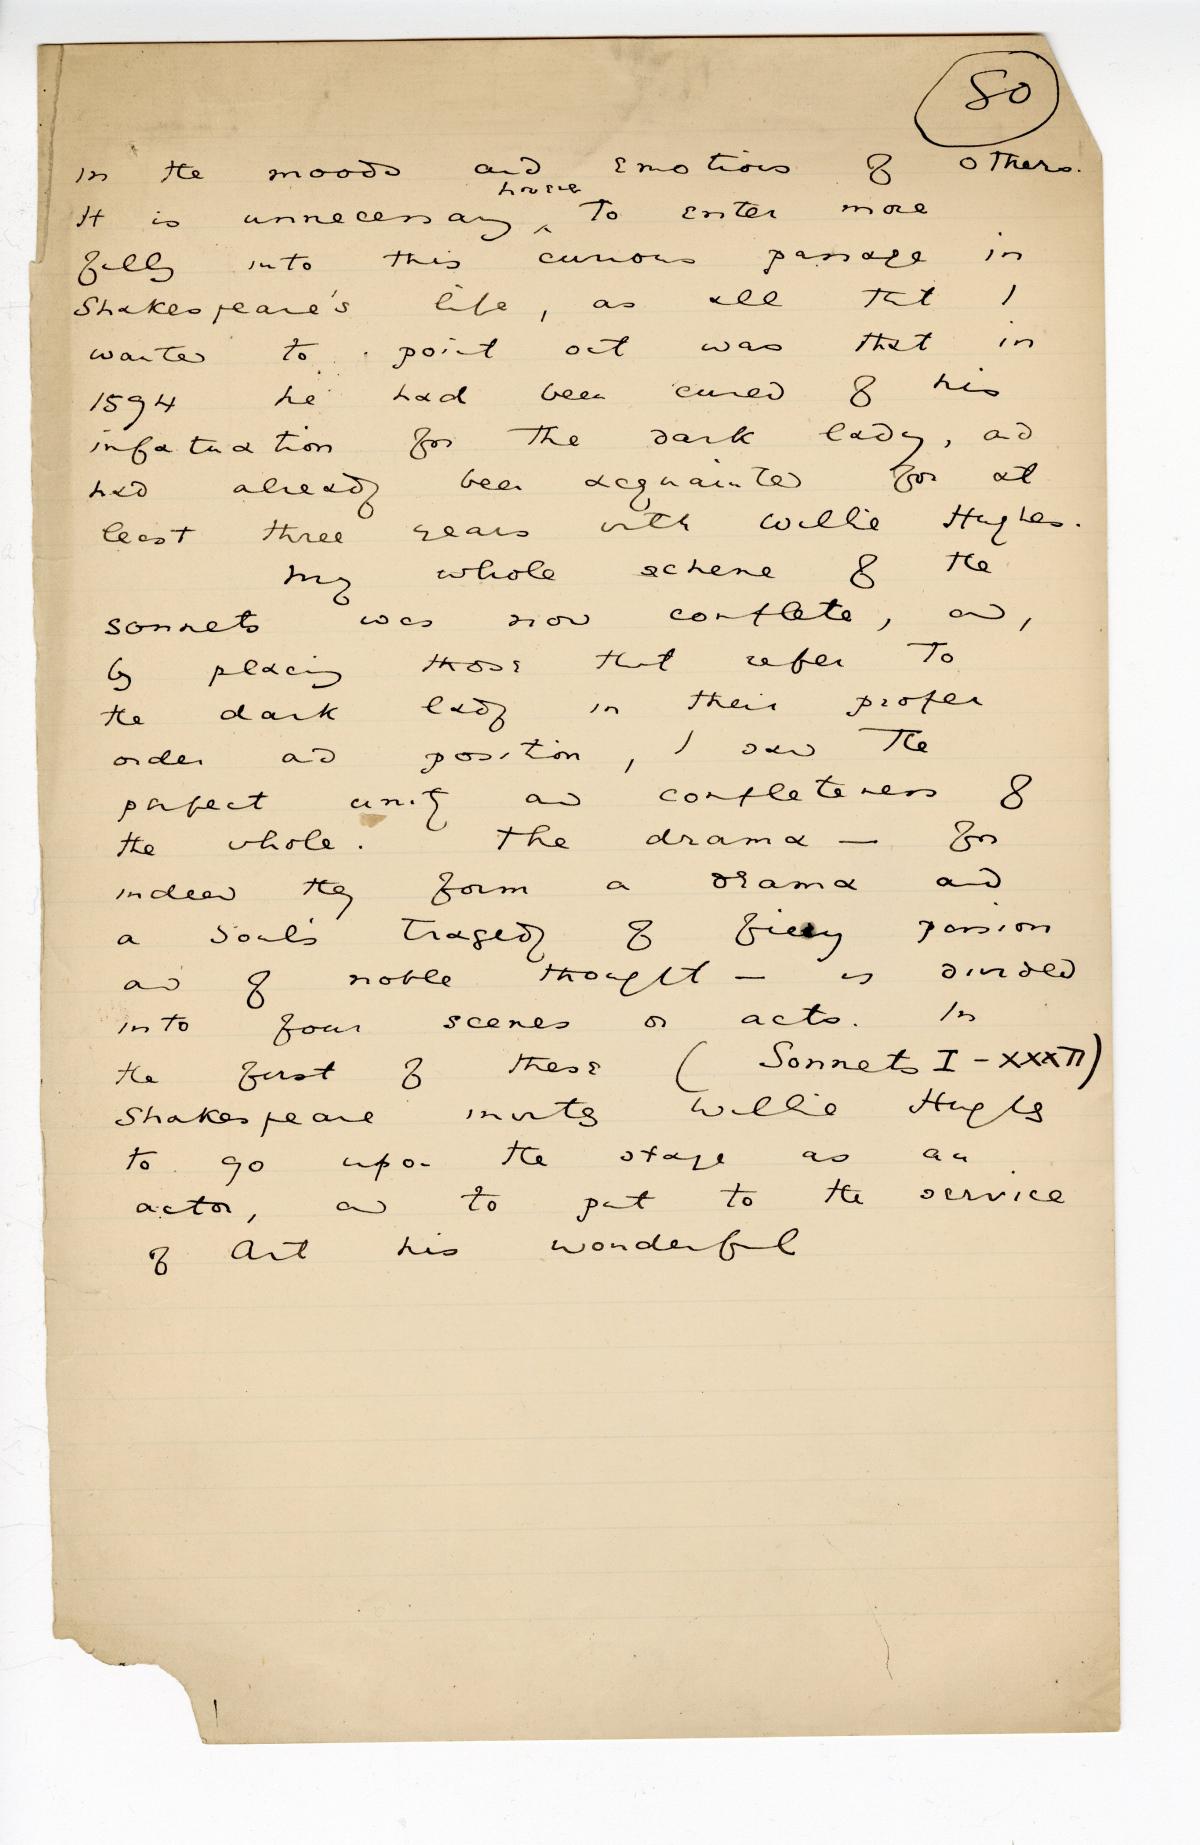 80
in the moods and emotions of others.
however
It is unnecessary ‸ to enter more
fully into this curious passage in
Shakespeare's life, as all that I
wanted to point out was that in
1594 he had been cured of his
infatuation for the dark lady, and
had already been acquainted for at
least three years with Willie Hughes.
My whole scheme of the
sonnets was now complete, and,
by placing those that refer to
the dark lady in their proper
order and position, I saw the
perfect unity and completeness of
the whole. The drama — for
indeed they form a drama and
a soul's tragedy of fiery passion
and of noble thought — is divided
into four scenes or acts. In
the first of these (Sonnets I - XXXII)
Shakespeare invites Willie Hughes
to go upon the stage as an
actor, and to put to the service
of Art his wonderful